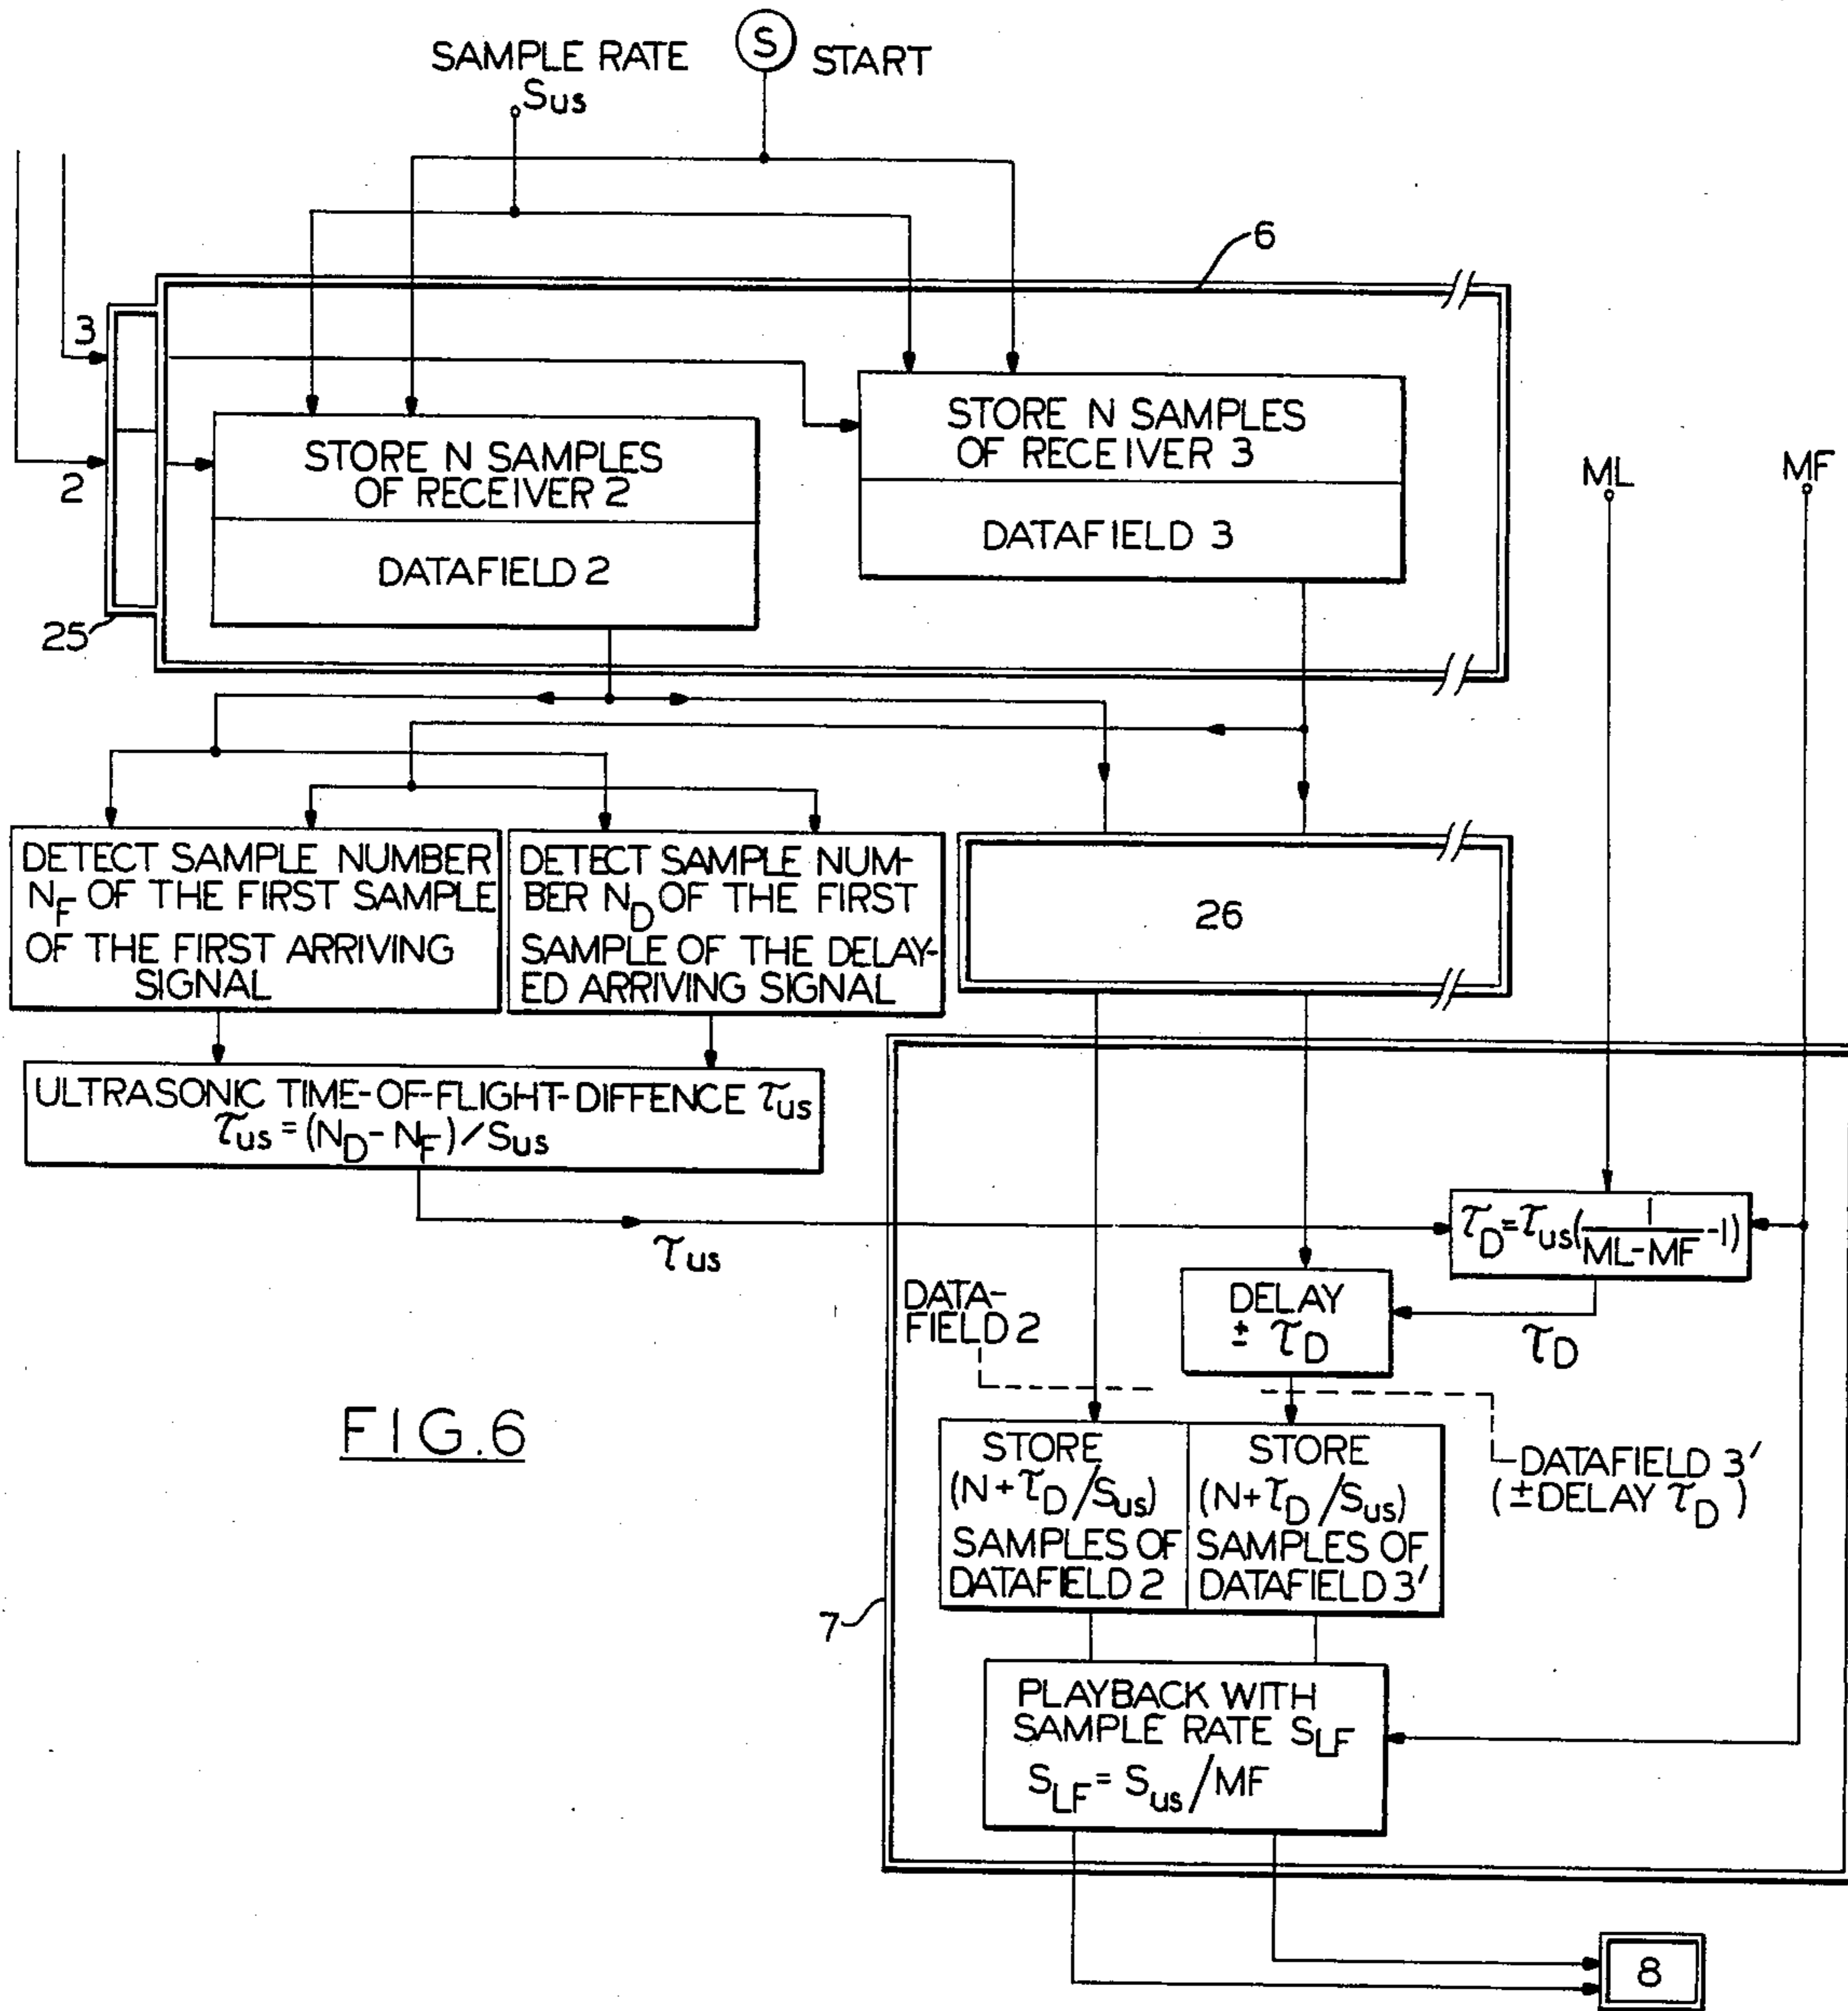 SAMPLE RATE
Sus
S START
6
3
2
25
STORE N SAMPLES
OF RECEIVER 2
DATAFIELD 2
STORE N SAMPLES
OF RECEIVER 3
DATAFIELD 3
ML
MF
DETECT SAMPLE NUMBER
N_F OF THE FIRST SAMPLE
OF THE FIRST ARRIVING
SIGNAL
DETECT SAMPLE NUM-
BER N_D OF THE FIRST
SAMPLE OF THE DELAY-
ED ARRIVING SIGNAL
26
ULTRASONIC TIME-OF-FLIGHT-DIFFENCE τus
τus = (N_D - N_F) / Sus
τus
τ_D = τus(1/(ML-MF) -1)
DELAY
± τ_D
τ_D
DATA-
FIELD 2
STORE
(N + τ_D /Sus)
SAMPLES OF
DATAFIELD 2
STORE
(N + τ_D /Sus)
SAMPLES OF
DATAFIELD 3'
DATAFIELD 3'
(±DELAY τ_D)
7
PLAYBACK WITH
SAMPLE RATE S_LF
S_LF = Sus /MF
8
FIG.6